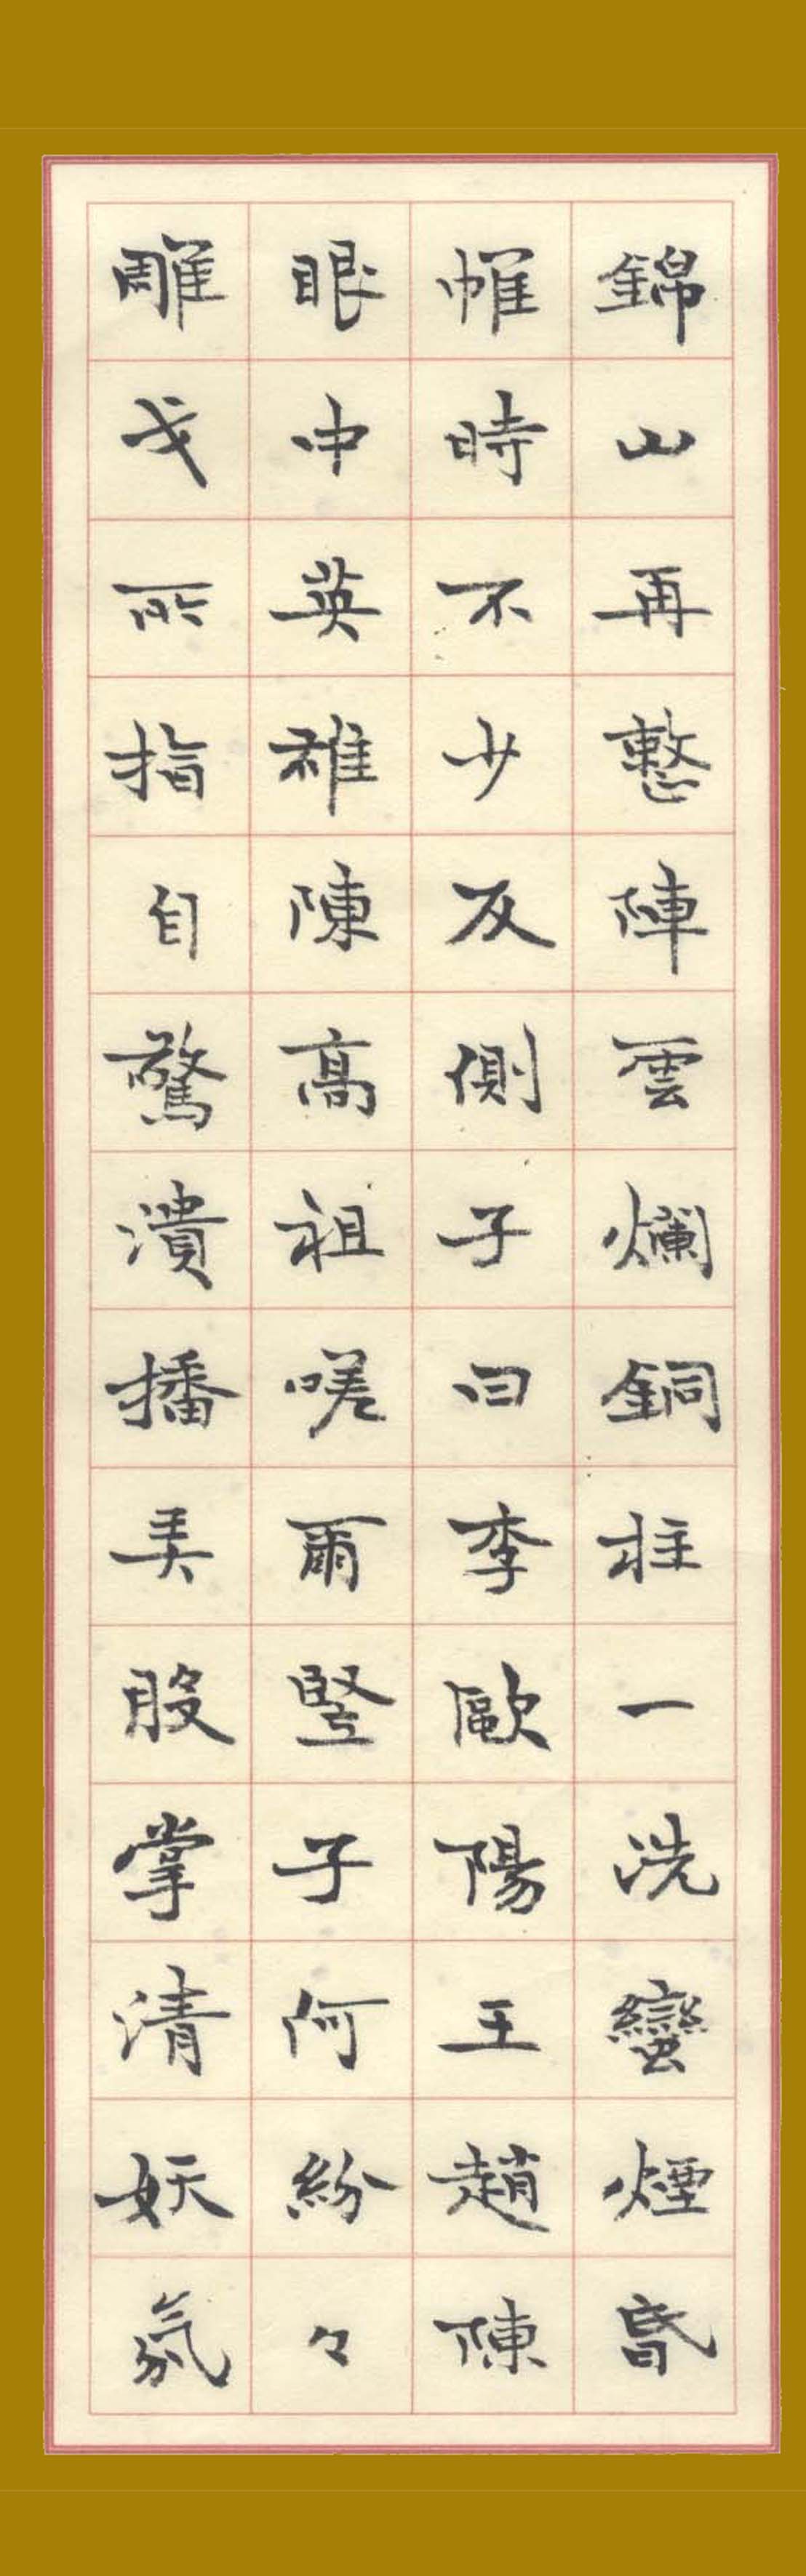 錦山再整陣雲爛銅柱一洗蠻煙昏
帷時不少反側子曰李歐陽王趙陳
眼中英雄陳高祖嗟爾豎子何紛々
雕戈所指自驚潰播美股掌清妖氛